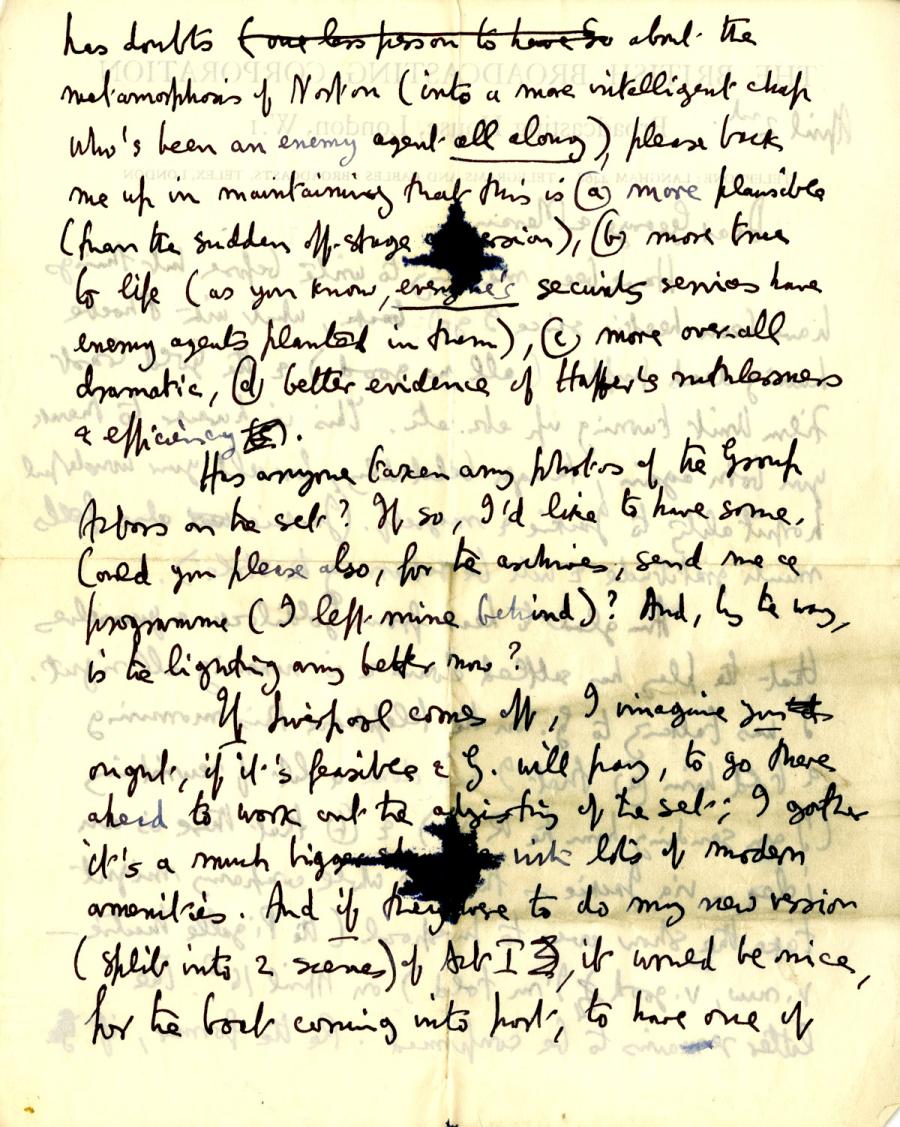 has doubts (one less person to have so about the
metamorphosis of Norton (into a more intelligent chap
who's been an enemy agent all along), please back
me up in maintaining that this is (a) more plausible
(than the sudden off-stage conversion), (b) more true
to life (as you know, everyone's security services have
enemy agents planted in them), (c) more over-all
dramatic, (d) better evidence of Haffer's ruthlessness
& efficiency).
Has anyone taken any photos of the Group
Actors on the set? If so, I'd like to have some.
Could you please also, for the archives, send me a
programme (I left mine behind)? And, by the way,
is the lighting any better now?
If Liverpool comes off, I imagine you
ought, if it's feasible & G. will pay, to go there
ahead to work out the adjusting of the set; I gather
it's a much bigger with lots of modern
amenities. And if they were to do my new version
(split into 2 scenes) of Act I, it would be nice,
for the boat coming into port, to have one of